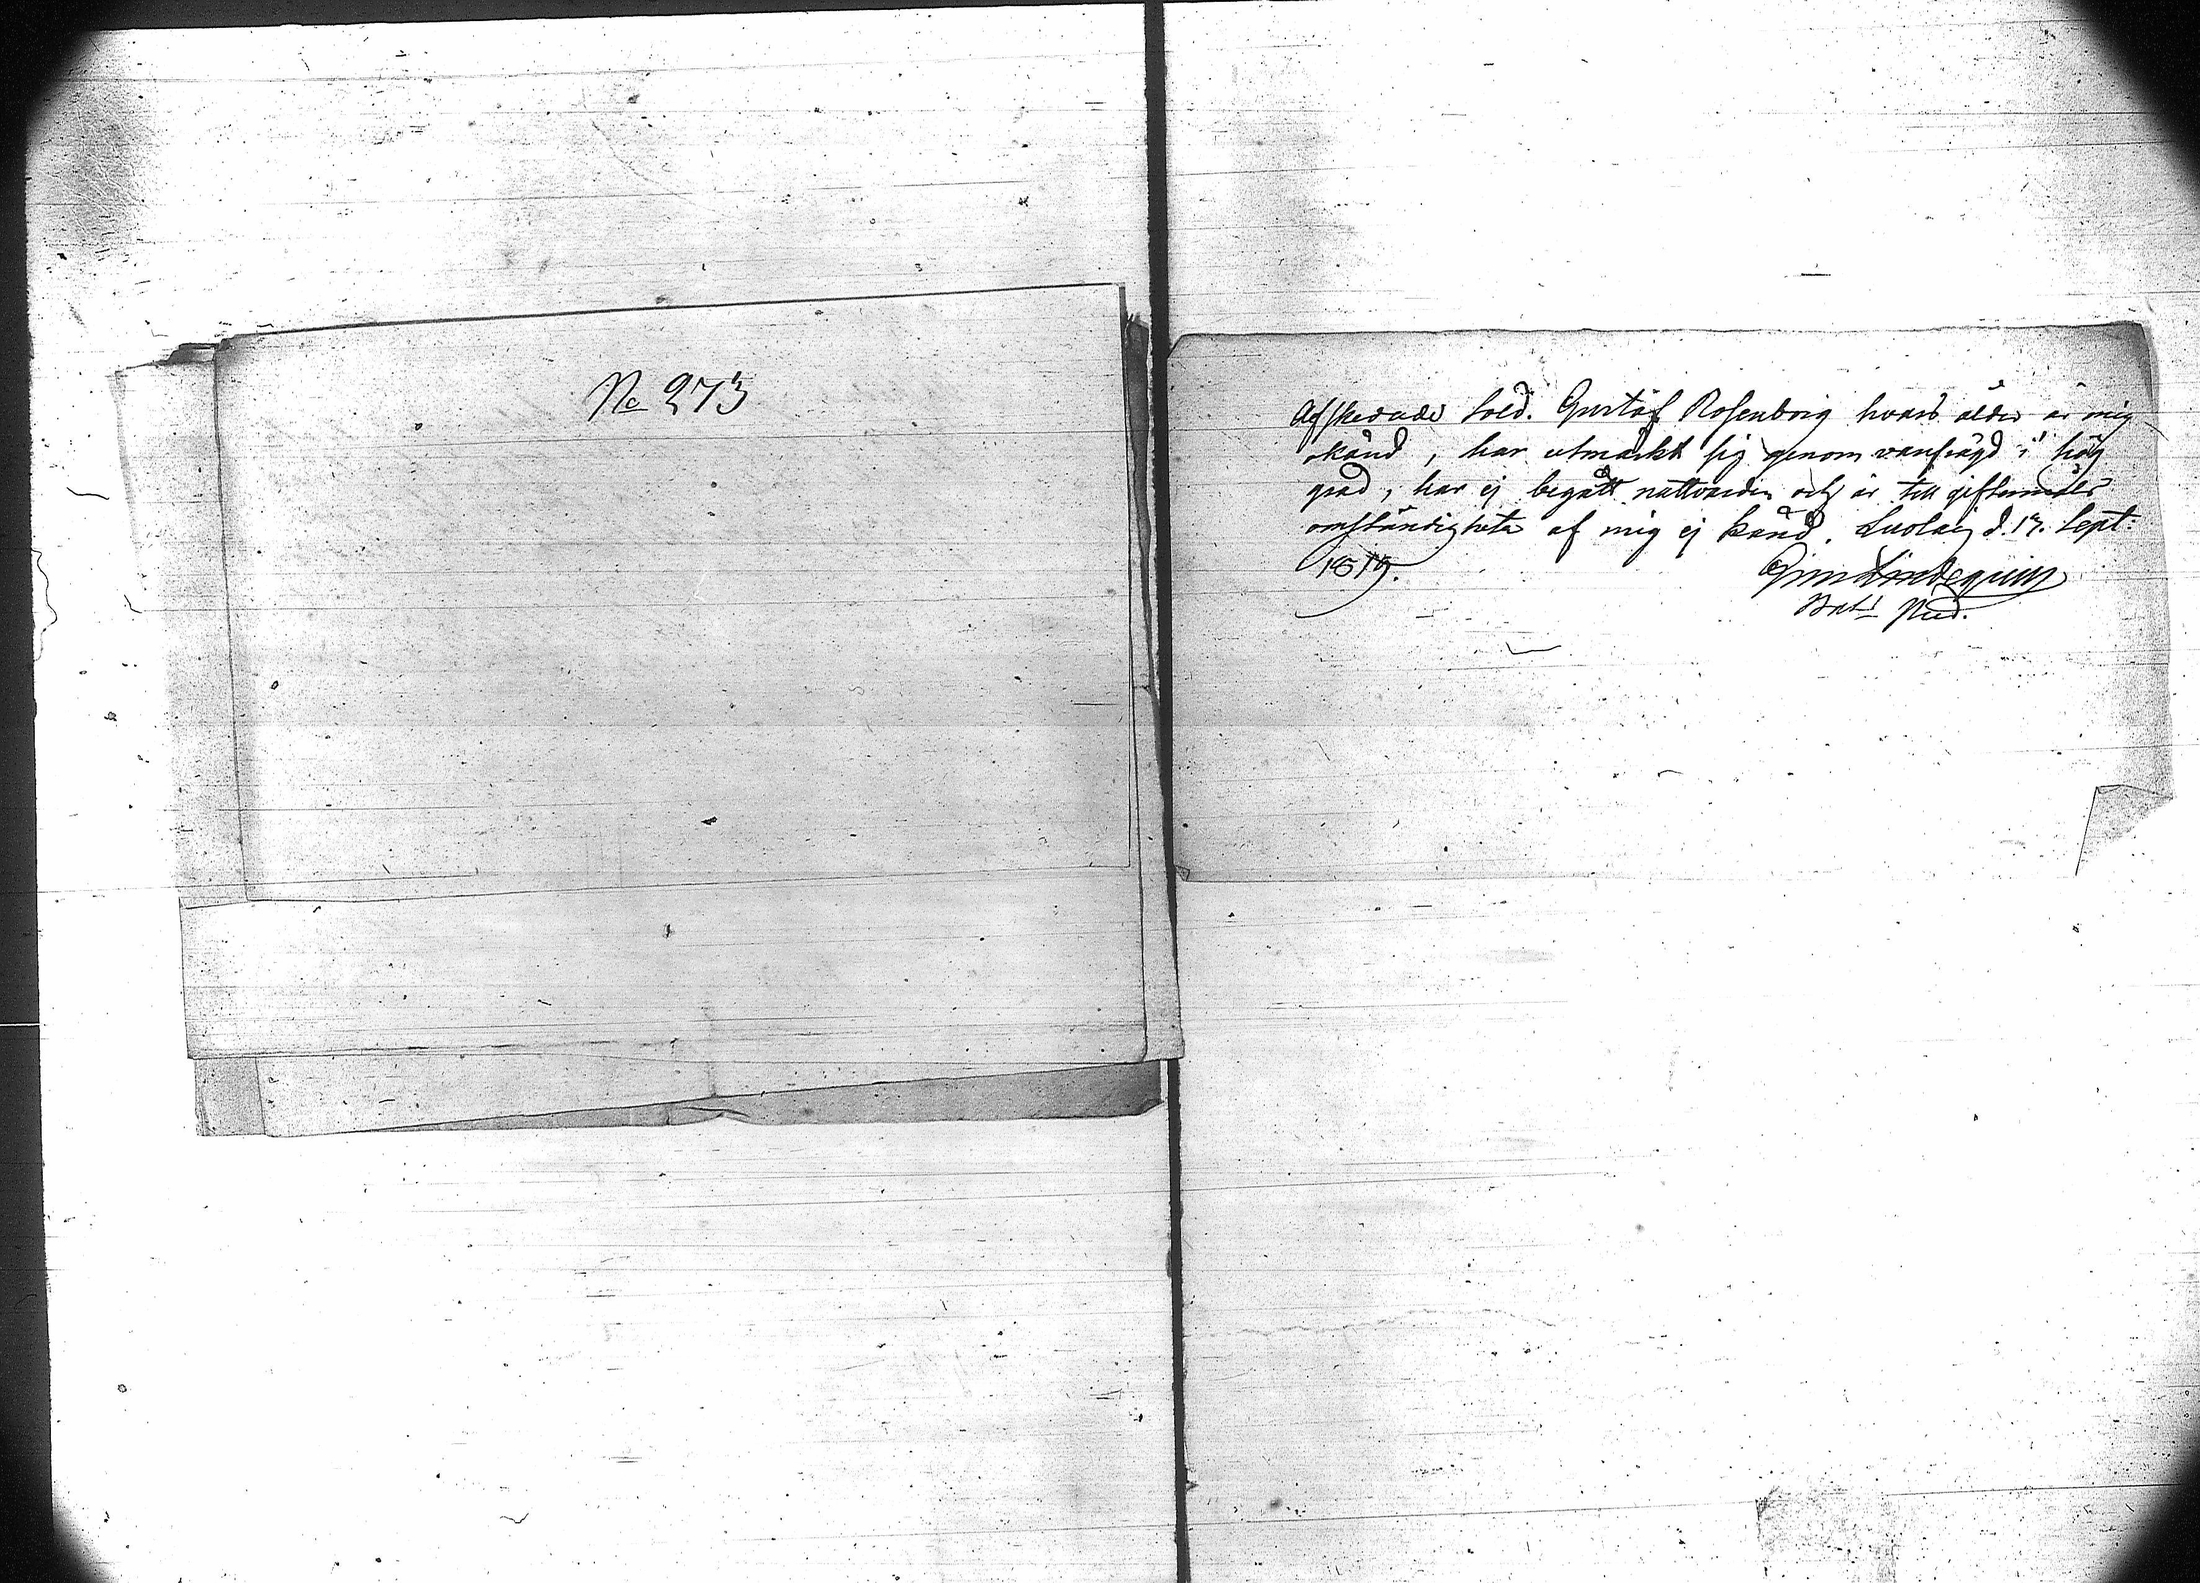 No 273
Afskedade Sold. Gustaf Rosenborg hvars ålder är mig
okänd, har utmärkt sig genom vanfrägd i hög
grad, har ej begått nattvarden och är till giftermåls
omständigheter af mig ej känd. Kuolaj d. 17. Sept:
1819.
Bat: Pred.